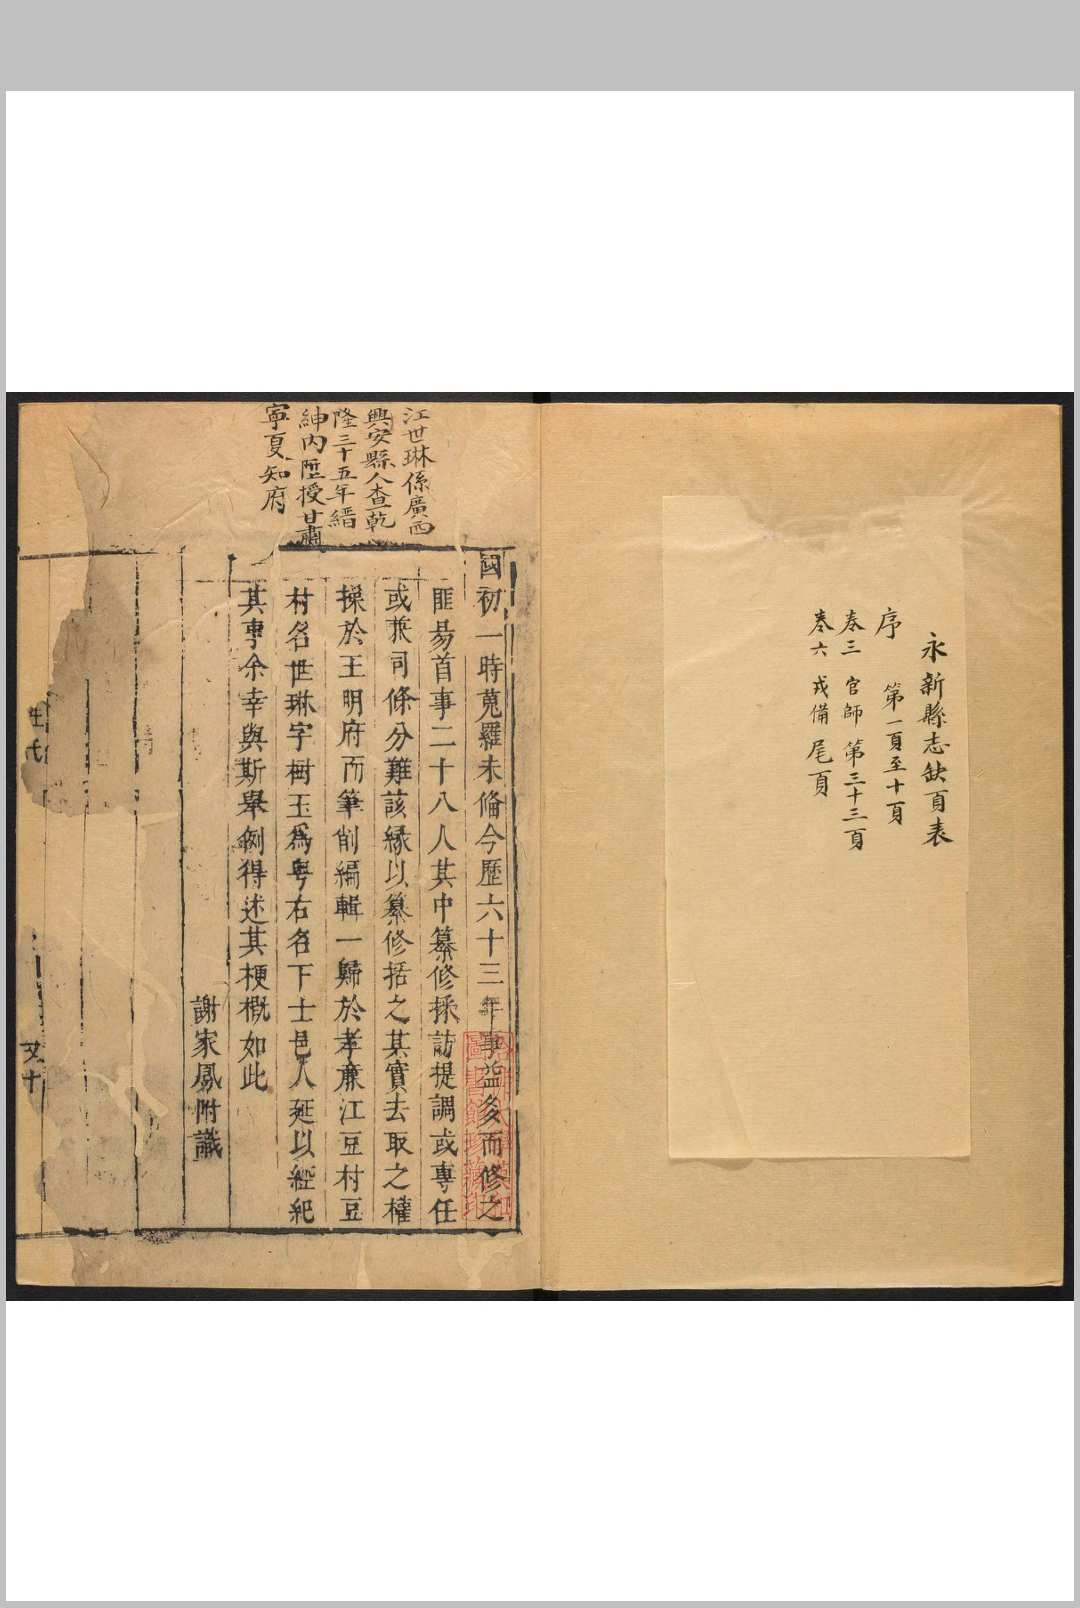 永新縣志缺頁表
序　第一頁至十頁
卷三　官師　第三十三頁
卷六　戎備　尾頁
江世琳係廣西
興安縣人查乾
隆三十五年縉
紳內陞授甘肅
寧夏知府
國初一時蒐羅未俻今歷六十三年事益多而修之
匪易首事二十八人其中纂修採訪提調或專任
或兼司條分難該緣以纂修括之其實去取之權
操於王明府而筆削編輯一歸於孝廉江豆村豆
村名世琳字樹玉爲粤右名下士邑人延以經紀
其事余幸與斯舉例得述其梗概如此
謝家鳳附識
哈佛大學漢和
圖書館珍藏印